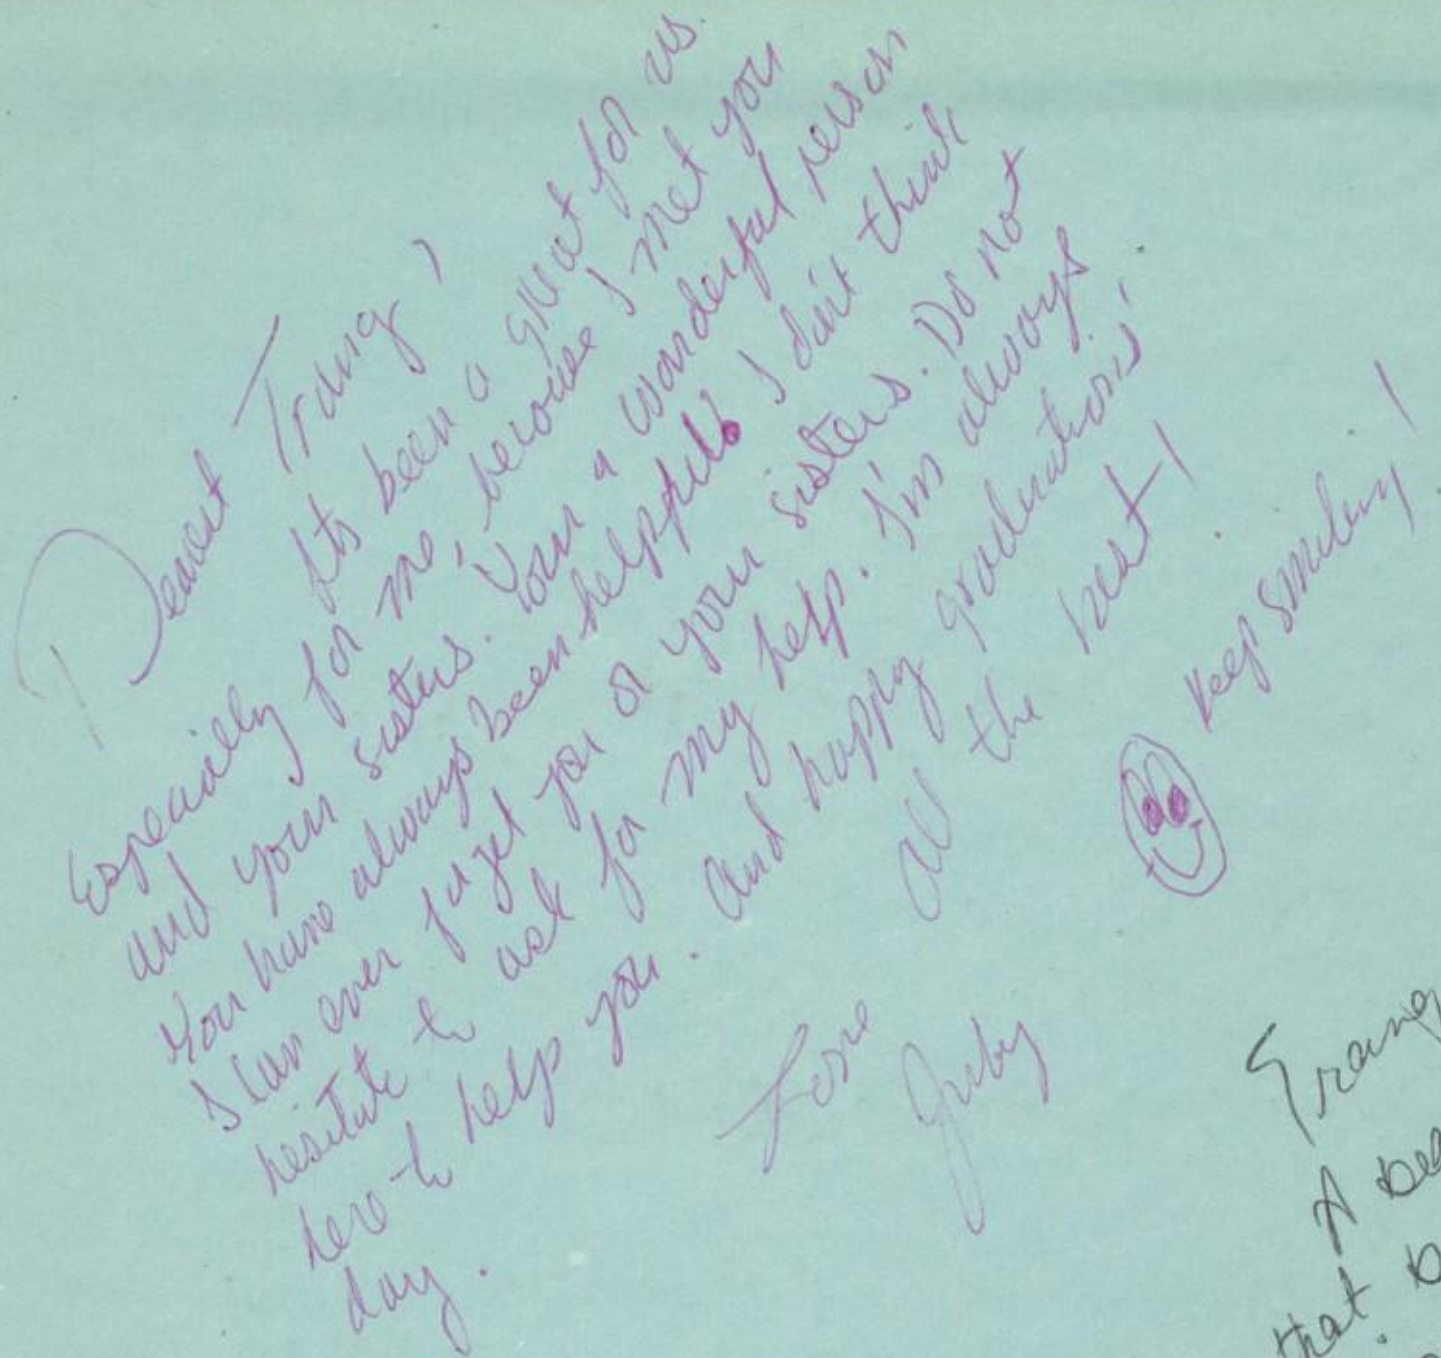 Dearest Trang,
Its been a great for us.
Especially for me, because I met you
and your sisters. Your a wonderful person
You have always been helpfull. I don't think
I can ever forget you or your sisters. Do not
hesitate to ask for my help. I'm always
here to help you. And happy graduations'
day.
All the best!
Keep smiling!
Love
Juby
Trang
A
that